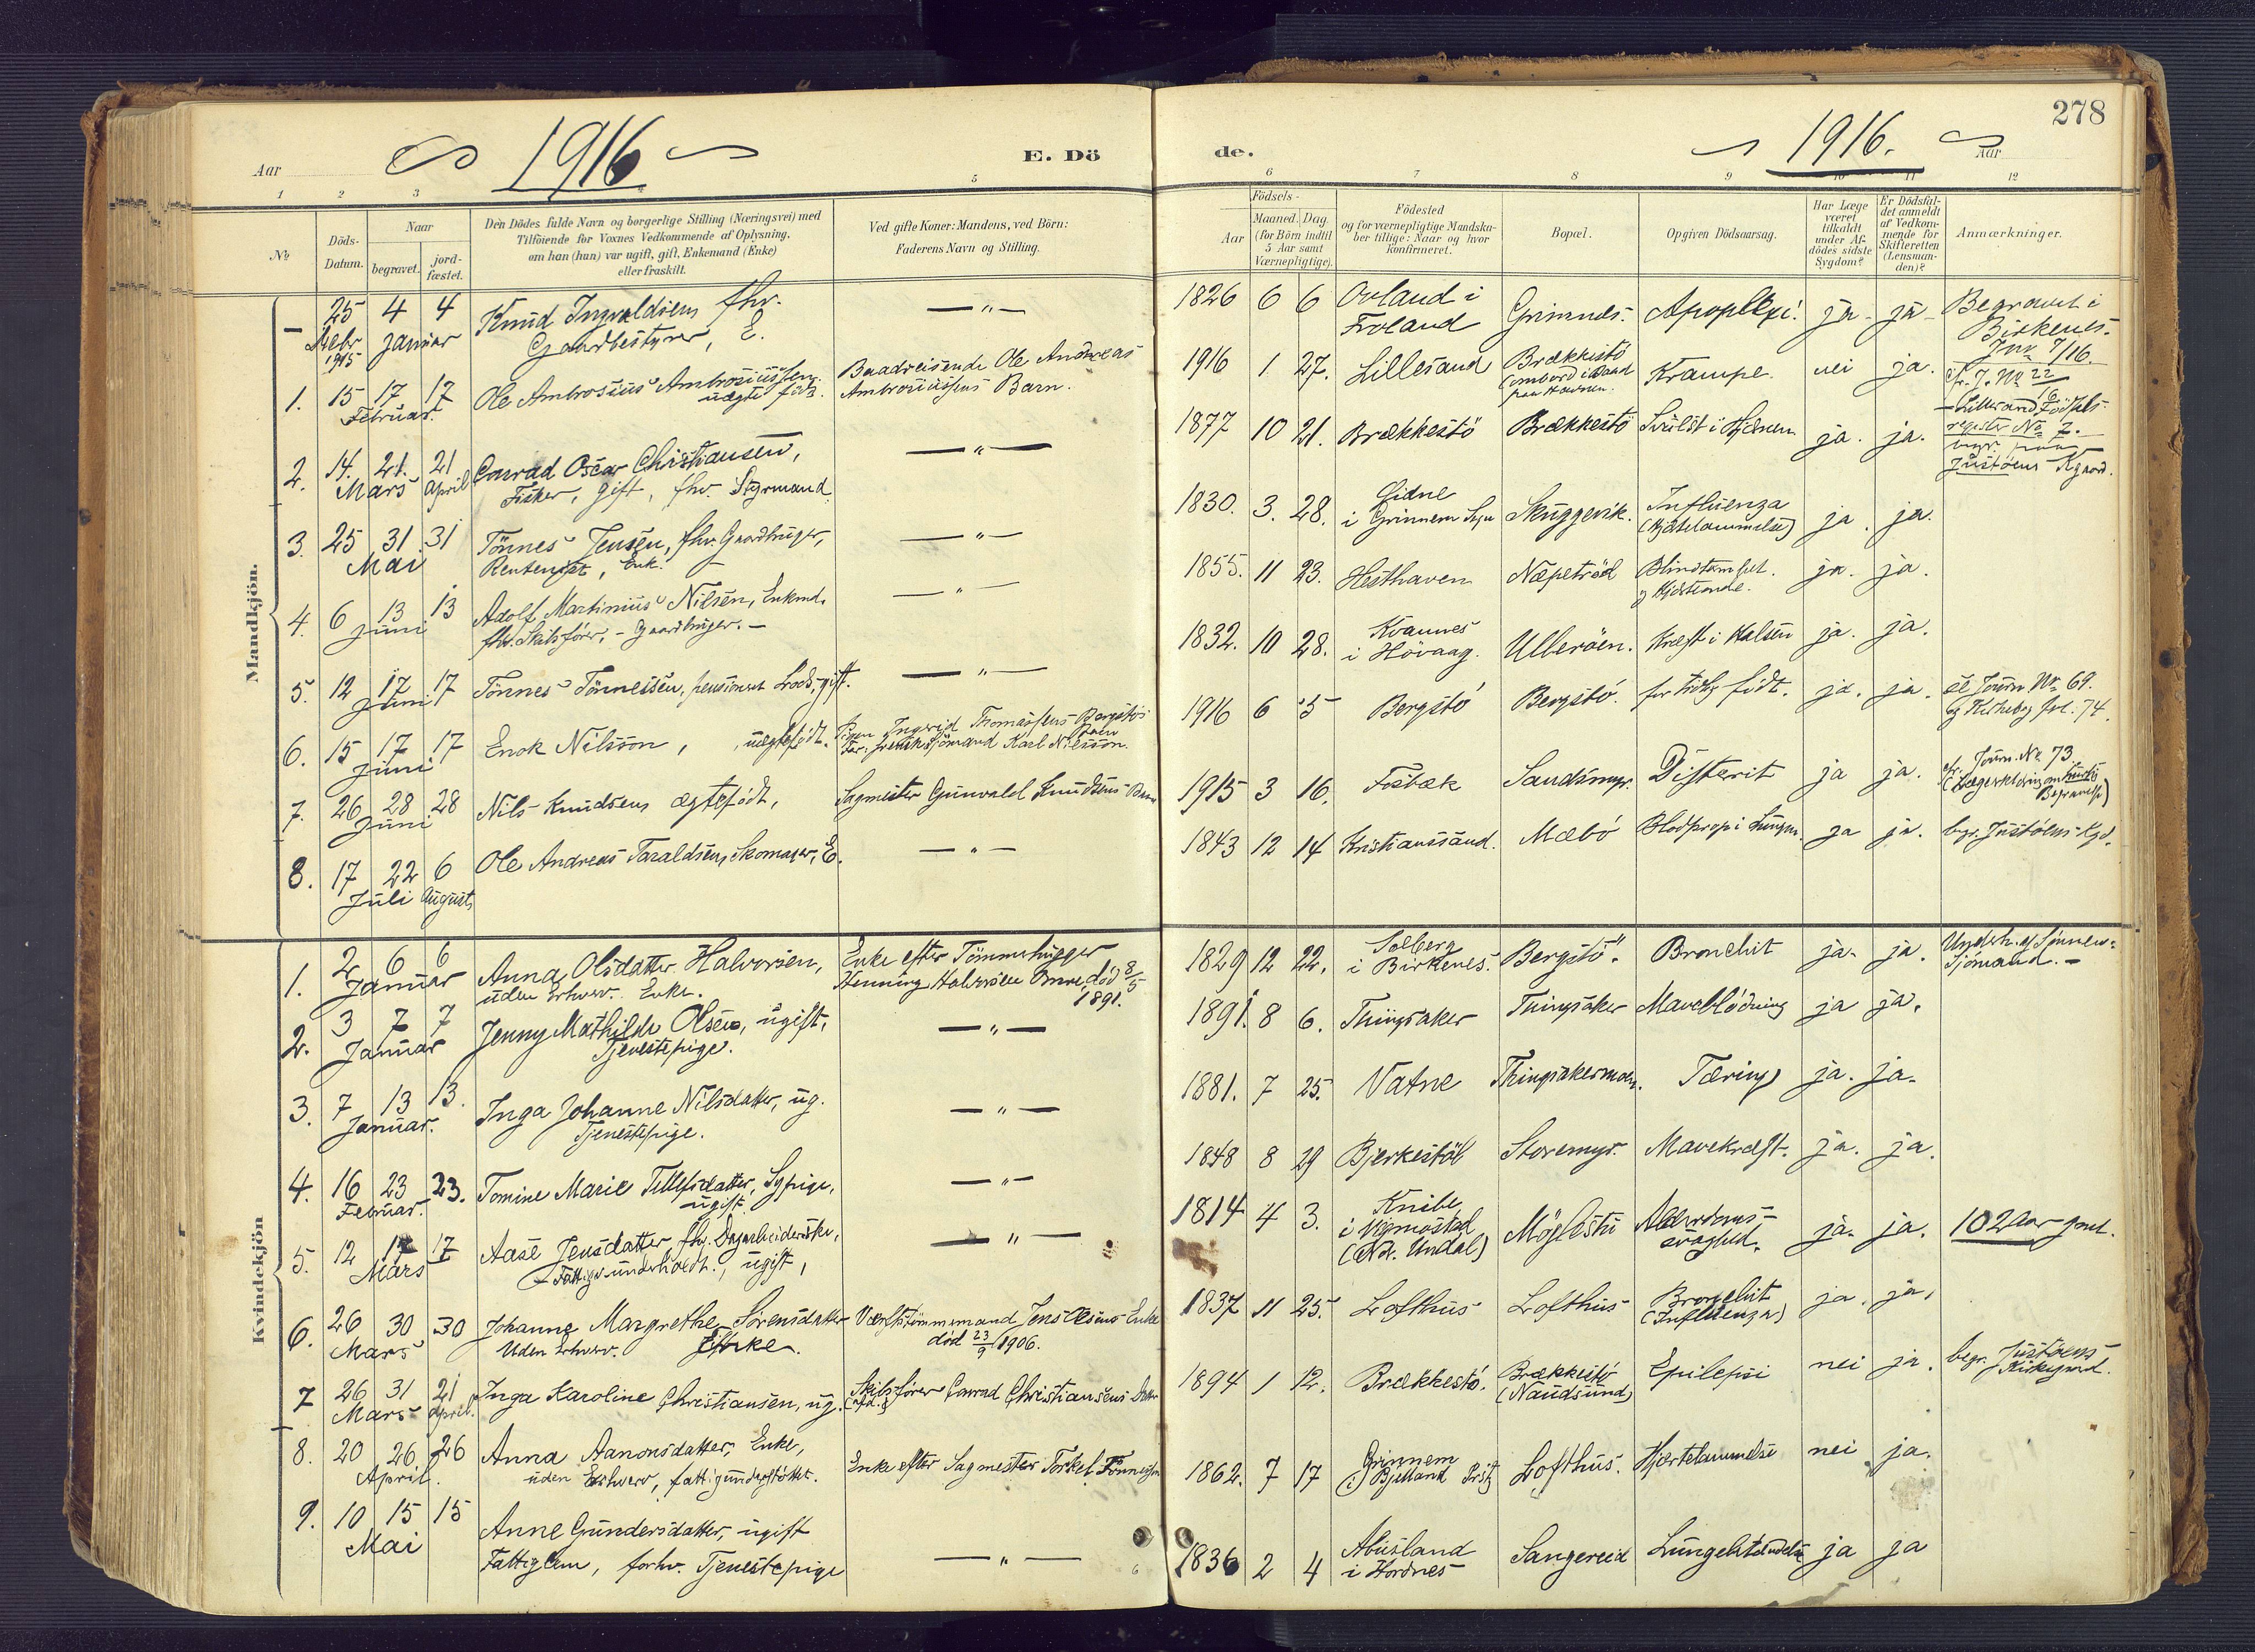 278
Aar 1916 E. Dö
de. 1916. Aar
1 2 3 5
6 7 8 9 10 11 12
№
Döds-
Datum.
Naar
begravet.
jord-
fæstet.
Den Dödes fulde Navn og borgerlige Stilling (Næringsvei) med
Tilföiende for Voxnes Vedkommende af Oplysning,
om han (hun) var ugift, gift, Enkemand (Enke)
eller fraskilt.
Ved gifte Koner: Mandens, ved Börn:
Faderens Navn og Stilling.
Födsels-
Aar
Maaned. Dag.
(for Börn indtil
5 Aar samt
Værnepligtige).
Födested
og for værnepligtige Mandska-
ber tillige: Naar og hvor
konfirmeret.
Bopæl.
Opgiven Dödsaarsag.
Har Læge
været
tilkaldt
under Af-
dödes sidste
Sygdom?
Er Dödsfal-
det anmeldt
af Vedkom-
mende for
Skifteretten
(Lensman-
den)?
Anmærkninger.
Mandkjön.
– 25 4 4 Knud Ingvaldsen, fhv. — " — 1826 6 6 Ovland i Grimnes. Apoplexi. ja - ja - Begravet i
Debr Januar Gaardbestyrer, E. Froland Birkenes.
1915 Jnr 7/16.
1. 15 17 17 Ole Ambrosius Ambrosiussen Baadreisende Ole Andreas 1916 1 27. Lillesand Brækkestö Krampe. nei ja. cfr. J. No 22/16
Februar. uægte föd. Ambrosiussens Barn. (ombord i Baad
paa Havnen. – Lillesand Födsels-
register No 7.
2. 14. 21. 21 Conrad Oscar Christiansen, — " — 1877 10 21. Brækkestö Brækkestö Svulst i Hjernen ja. ja. begr. paa
Mars April Fisker, gift, fhv. Styrmand. Justöens Kgaard.
3. 25 31 31 Tönnes Jensen, fhv. Gaardbruger, — " — 1830. 3. 28. Eidne Skuggevik. Influenza ja. ja.
Mai Rentenist, Enk. i Grinnem Sogn (Hjertelammelse)
4. 6 13 13 Adolf Martinius Nilsen, Enkmd. — " — 1855. 11 23. Hesthaven Næpetröd Blindtarmsbet. ja. ja.
Juni fhv. Skibsförer, - Gaardbruger. –
5. 12 17 17 Tönnes Tönnessen, pensioneret Lods, gift. — " — 1832. 10 28. Kvannes Ulleröen. Kræft i Halsen ja. ja.
Juni i Hövaag.
6. 15 17 17 Enok Nilsson, uægtefödt. Pigen Ingrid Thomassens Bergstö 1916 6 5 Bergstö Bergstö. for tidlig födt. ja. ja. se Journ No 69.
Juni Far: svensk sjömand Karl Nilsson. og Kirkebog fol. 74.
7. 26 28 28 Nils Knudsen, ægtefödt, Sagmester Gunvald Knudsens Barn 1915 3 16. Fosbæk Sandsmyr. Difterit ja ja. cfr. Journ. No 73
Juni (Lægeerklæring om hurtig
Begravelse)
8. 17 22 6 Ole Andreas Taraldsen, Skomager, E. — " — 1843 12 14 Kristianssand. Mæbö Blodprop i Lungen. ja ja. begr. Justöens Kgd.
Juli August
Kvindekjön
1. 2 6 6 Anna Olsdatter Halvorsen, Enke efter Tömmerhugger 1829 12 22. Solberg Bergstö. Bronchit ja. ja. Understöt. af Sönnen =
Januar uden Erhverv. Enke. Henning Halvorsen död 8/5 1891. i Birkenes. Sjömand. –
2. 3 7 7 Jenny Mathilde Olsen, ugift, — " — 1891. 8 6. Thingsaker Thingsaker Maveblödning ja ja.
Januar Tjenestepige.
3. 7 13 13. Inga Johanne Nilsdatter, ug. — " — 1881. 7 25. Vatne Thingsakermoen. Tæring ja. ja.
Januar. Tjenestepige.
4. 16 23 23. Tomine Marie Tellefsdatter, Sypige, — " — 1848 8 29 Bjerkestöl Storemyr. Mavekræft. ja. ja.
Februar. ugift.
5. 12 17 17 Aase Jensdatter fhv. Dagarbeiderske, — " — 1814 4 3. Knibe Möglestu Alderdoms- ja. ja. 102 aar gml.
Mars – Fattigv. underholdt., ugift, i Vigmostad svaghed.
(Ndr. Undal)
6. 26 30 30 Johanne Margrethe Sörensdatter Værftstömmermand Jens Olsens Enke 1837 11 25. Lofthus Lofthus Bronchit ja. ja.
Mars Uden Erhverv. Enke. död 23/9 1906. (Influenza)
7 26 31 21 Inga Karoline Christiansen, ug. Skibsförer Conrad Christiansens Datter 1894 1 12. Brækkestö. Brækkestö Epilepsi nei ja. begr. Justöens
Mars April. (Naudsund) Kirkegaard.
8. 20 26 26 Anna Aanonsdatter, Enke, Enke efter Sagmester Torkel Tönnessen 1862. 7 17 Grinnem Lofthus. Hjertelammelse nei ja.
April. uden Erhverv, fattigunderstöttet. i Bjelland
9. 10 15 15 Anne Gundersdatter, ugift — " — 1836 2 4 Abusland Sangereid Lungebetændelse ja ja
Mai Fattiglem, forhv. Tjenestepige i Hordnes